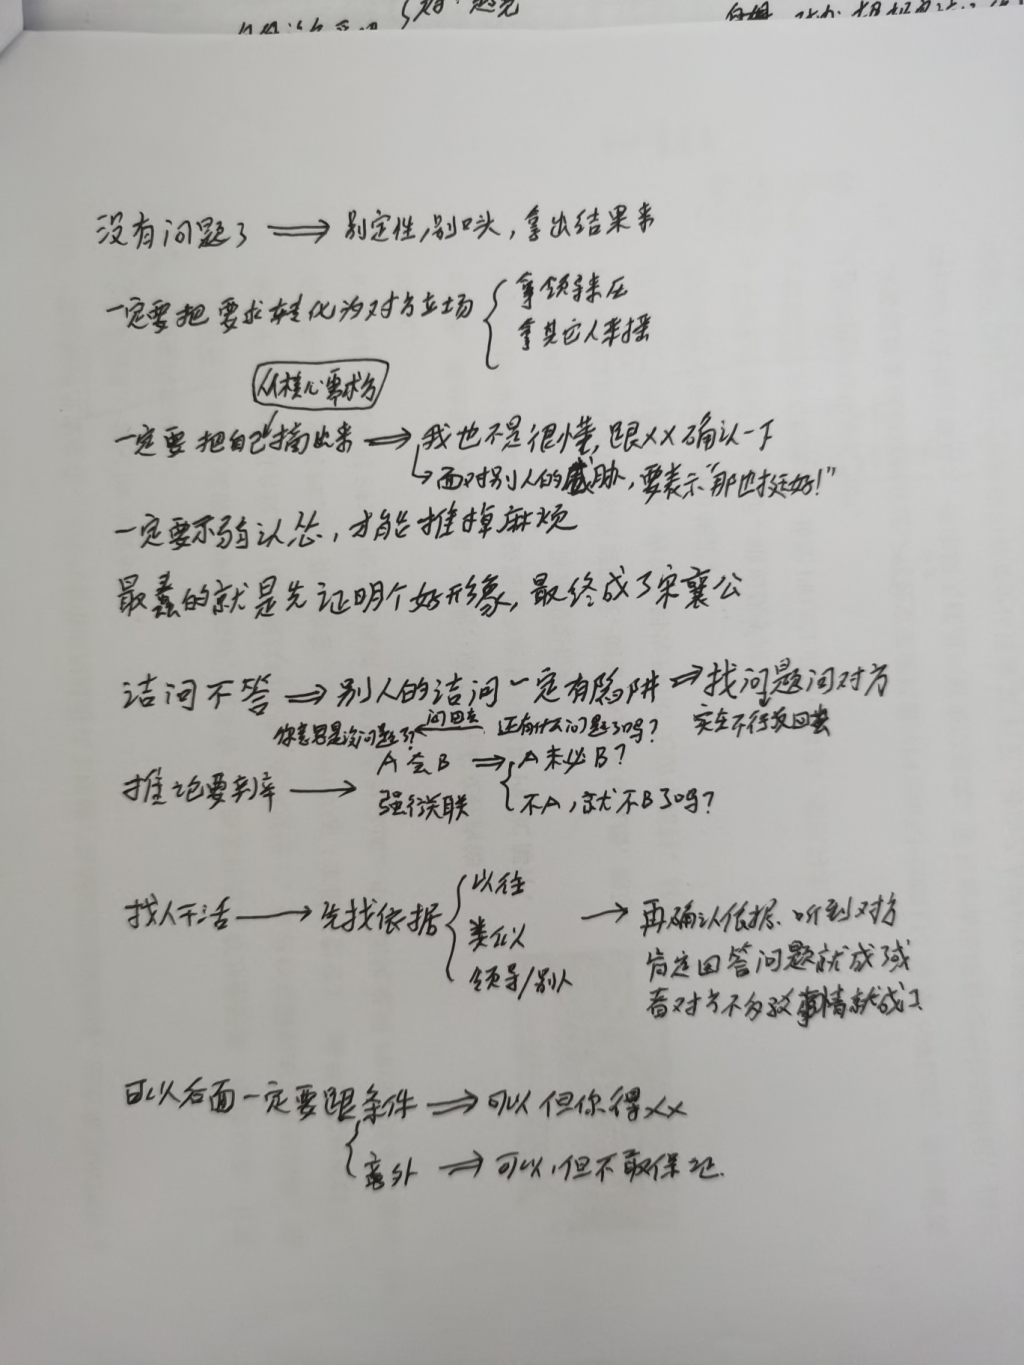 没有问题了 ⟹ 别定性,别口头,拿出结果来
一定要把要求转化为对方立场 { 拿领导来压
拿其它人来摇
从核心需求方
一定要把自己摘出来 ⟹ 我也不是很懂,跟XX确认一下
↳ 面对别人的威胁,要表示"那也挺好!"
一定要示弱认怂,才能推掉麻烦
最蠢的就是先证明个好形象,最终成了宋襄公
诘问不答 ⟹ 别人的诘问一定有陷阱 ⟹ 找问题问对方
你意思是没问题了? ← 问回去 还有什么问题了吗? 实在不行发回去
推论要 → A会B ⟹ { A未必B?
强行关联 不A,就不B了吗?
找人干活 → 先找依据 { 以往
类似
领导/别人
→ 再确认依据.听到对方
肯定回答问题就成
看对方不多事情就成了
可以后面一定要跟条件 ⟹ 可以但你得XX
{ 意外 ⟹ 可以,但不敢保证.